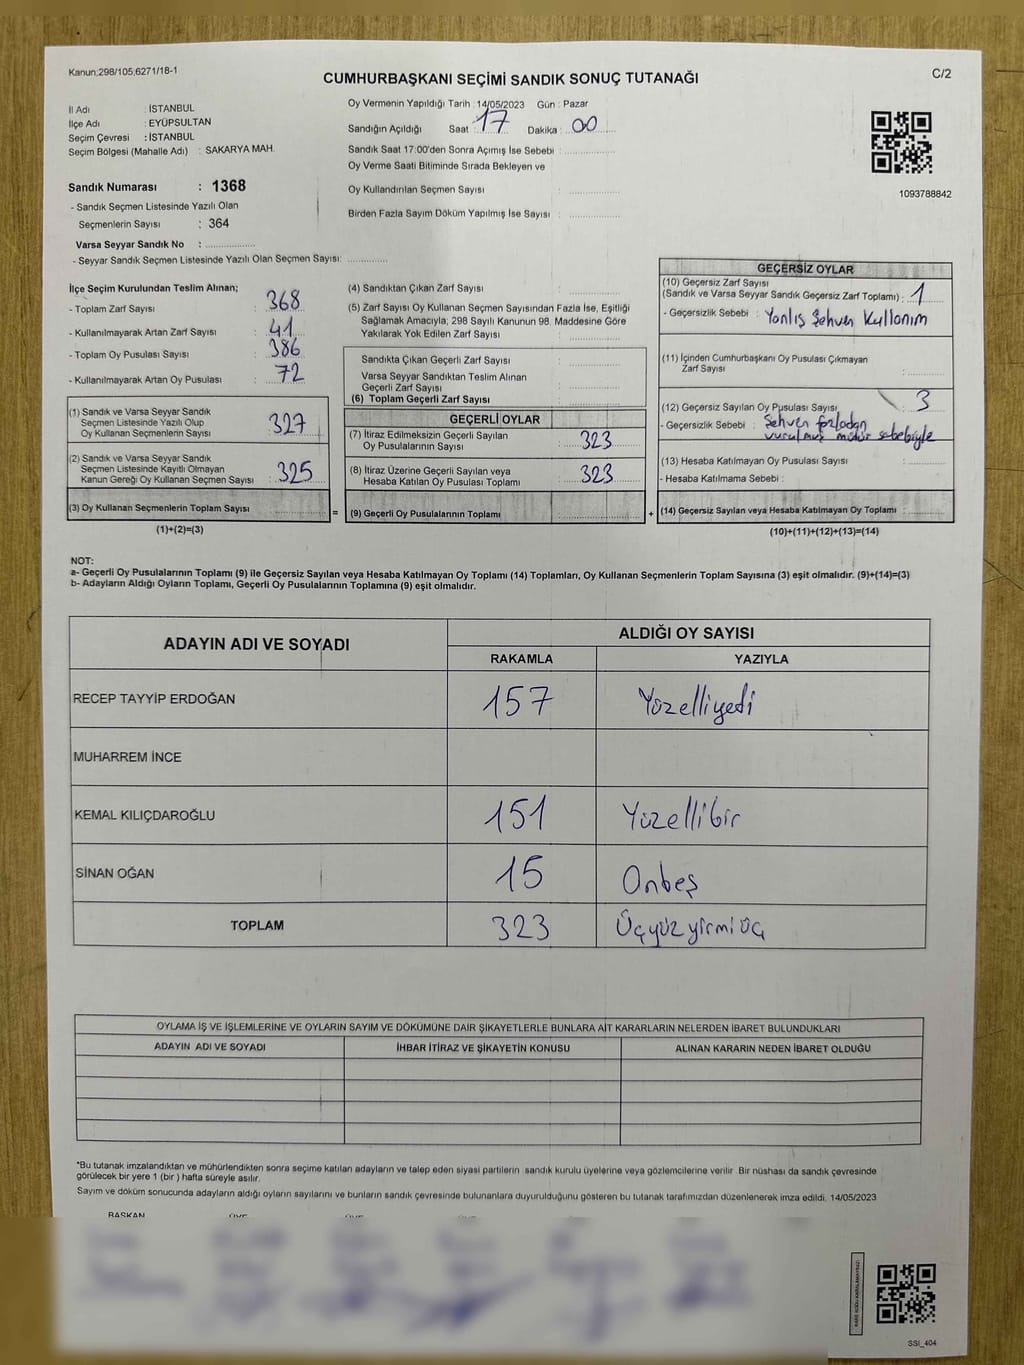 Kanun;298/105,6271/18-1
CUMHURBAŞKANI SEÇİMİ SANDIK SONUÇ TUTANAĞI
C/2
İl Adı : İSTANBUL
İlçe Adı : EYÜPSULTAN
Seçim Çevresi : İSTANBUL
Seçim Bölgesi (Mahalle Adı) : SAKARYA MAH.
Oy Vermenin Yapıldığı Tarih : 14/05/2023 Gün : Pazar
Sandığın Açıldığı Saat : 17 Dakika : 00
Sandık Saat 17:00'den Sonra Açımış İse Sebebi :
Oy Verme Saati Bitiminde Sırada Bekleyen ve
Oy Kullandırılan Seçmen Sayısı :
Birden Fazla Sayım Döküm Yapılmış İse Sayısı :
1093788842
Sandık Numarası : 1368
- Sandık Seçmen Listesinde Yazılı Olan
Seçmenlerin Sayısı : 364
Varsa Seyyar Sandık No :
- Seyyar Sandık Seçmen Listesinde Yazılı Olan Seçmen Sayısı:
İlçe Seçim Kurulundan Teslim Alınan;
- Toplam Zarf Sayısı : 368
- Kullanılmayarak Artan Zarf Sayısı : 41
- Toplam Oy Pusulası Sayısı : 386
- Kullanılmayarak Artan Oy Pusulası : 72
(1) Sandık ve Varsa Seyyar Sandık
Seçmen Listesinde Yazılı Olup
Oy Kullanan Seçmenlerin Sayısı : 327
(2) Sandık ve Varsa Seyyar Sandık
Seçmen Listesinde Kayıtlı Olmayan
Kanun Gereği Oy Kullanan Seçmen Sayısı : 325
(3) Oy Kullanan Seçmenlerin Toplam Sayısı
(1)+(2)=(3)
(4) Sandıktan Çıkan Zarf Sayısı :
(5) Zarf Sayısı Oy Kullanan Seçmen Sayısından Fazla İse, Eşitliği
Sağlamak Amacıyla; 298 Sayılı Kanunun 98. Maddesine Göre
Yakılarak Yok Edilen Zarf Sayısı :
Sandıkta Çıkan Geçerli Zarf Sayısı :
Varsa Seyyar Sandıktan Teslim Alınan
Geçerli Zarf Sayısı :
(6) Toplam Geçerli Zarf Sayısı :
GEÇERLİ OYLAR
(7) İtiraz Edilmeksizin Geçerli Sayılan
Oy Pusulalarının Sayısı : 323
(8) İtiraz Üzerine Geçerli Sayılan veya
Hesaba Katılan Oy Pusulası Toplamı : 323
= (9) Geçerli Oy Pusulalarının Toplamı
GEÇERSİZ OYLAR
(10) Geçersiz Zarf Sayısı
(Sandık ve Varsa Seyyar Sandık Geçersiz Zarf Toplamı) : 1
- Geçersizlik Sebebi : Yanlış Şehven Kullanım
(11) İçinden Cumhurbaşkanı Oy Pusulası Çıkmayan
Zarf Sayısı :
(12) Geçersiz Sayılan Oy Pusulası Sayısı : 3
- Geçersizlik Sebebi : Şehven fazladan
vurulmuş mühür sebebiyle
(13) Hesaba Katılmayan Oy Pusulası Sayısı :
- Hesaba Katılmama Sebebi :
+ (14) Geçersiz Sayılan veya Hesaba Katılmayan Oy Toplamı :
(10)+(11)+(12)+(13)=(14)
NOT:
a- Geçerli Oy Pusulalarının Toplamı (9) ile Geçersiz Sayılan veya Hesaba Katılmayan Oy Toplamı (14) Toplamları, Oy Kullanan Seçmenlerin Toplam Sayısına (3) eşit olmalıdır. (9)+(14)=(3)
b- Adayların Aldığı Oyların Toplamı, Geçerli Oy Pusulalarının Toplamına (9) eşit olmalıdır.
ADAYIN ADI VE SOYADI
ALDIĞI OY SAYISI
RAKAMLA YAZIYLA
RECEP TAYYİP ERDOĞAN 157 Yüzelliyedi
MUHARREM İNCE
KEMAL KILIÇDAROĞLU 151 Yüzellibir
SİNAN OĞAN 15 Onbeş
TOPLAM 323 Üçyüzyirmiüç
OYLAMA İŞ VE İŞLEMLERİNE VE OYLARIN SAYIM VE DÖKÜMÜNE DAİR ŞİKAYETLERLE BUNLARA AİT KARARLARIN NELERDEN İBARET BULUNDUKLARI
ADAYIN ADI VE SOYADI İHBAR İTİRAZ VE ŞİKAYETİN KONUSU ALINAN KARARIN NEDEN İBARET OLDUĞU
*Bu tutanak imzalandıktan ve mühürlendikten sonra seçime katılan adayların ve talep eden siyasi partilerin sandık kurulu üyelerine veya gözlemcilerine verilir. Bir nüshası da sandık çevresinde
görülecek bir yere 1 (bir ) hafta süreyle asılır.
Sayım ve döküm sonucunda adayların aldığı oyların sayılarını ve bunların sandık çevresinde bulunanlara duyurulduğunu gösteren bu tutanak tarafımızdan düzenlenerek imza edildi. 14/05/2023
BAŞKAN ÜYE ÜYE
SSİ_404